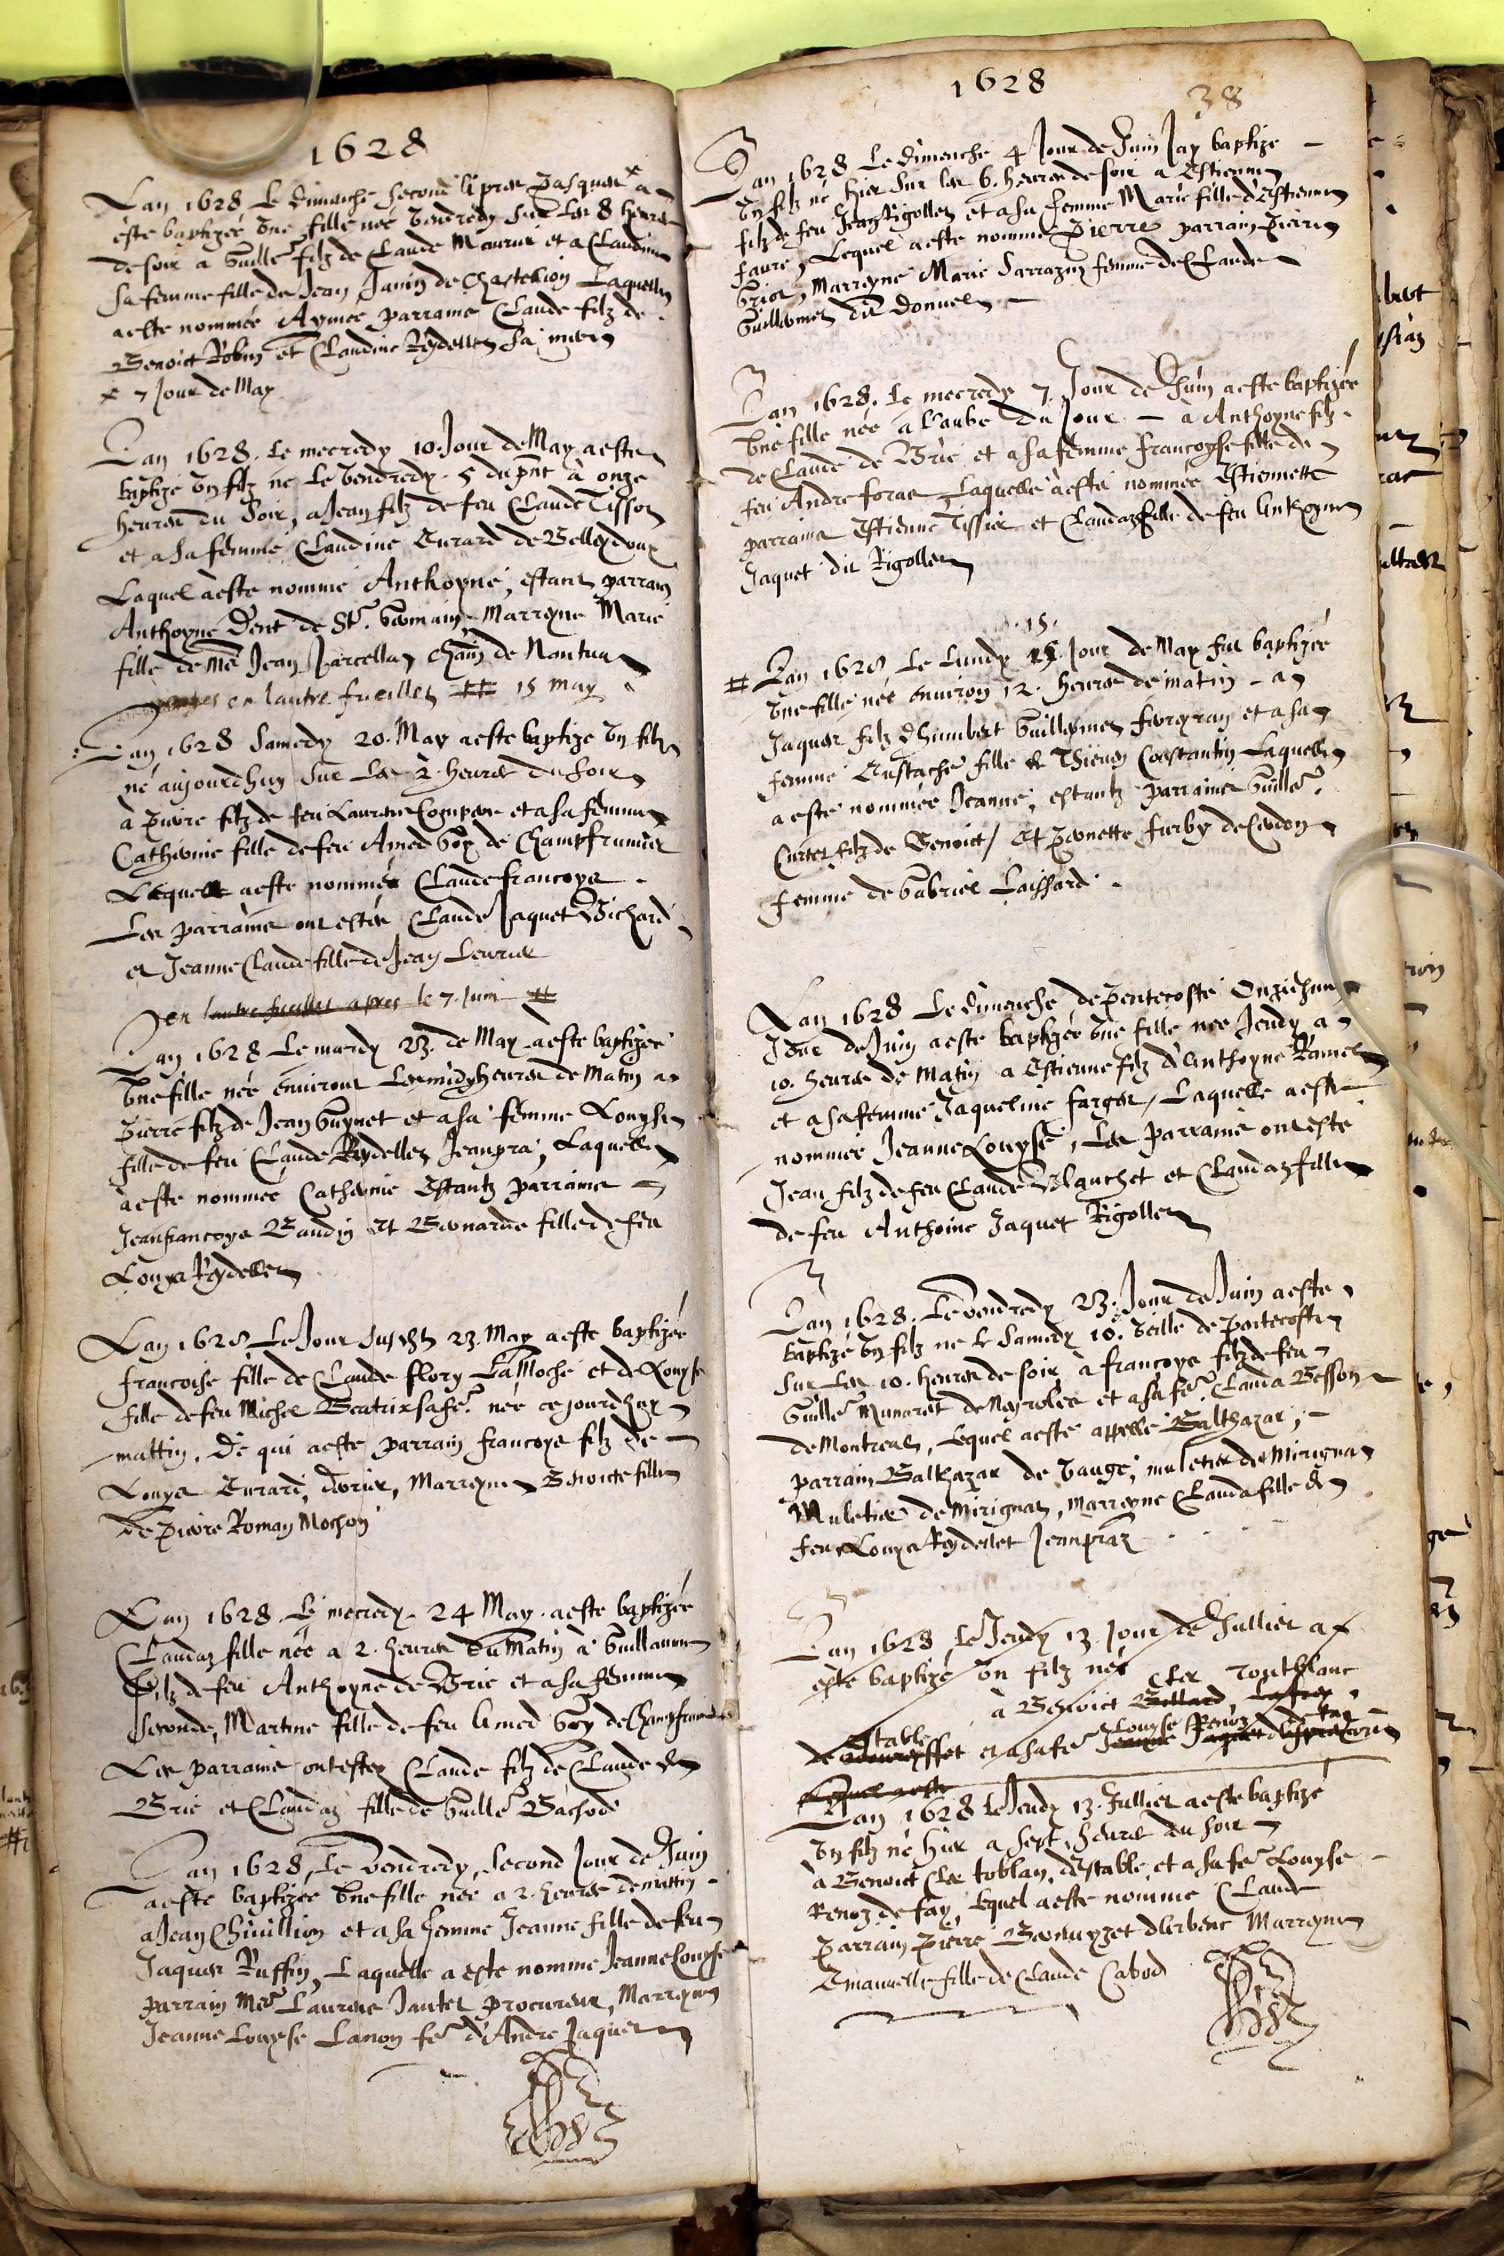 1628
Lan 1628 Le dimanche second apres Pasques x a
este baptizée une fille née vendredy sur les 8 heures
de soir a Guille filz de Claude Maurier et a Claudine
sa femme fille de Jean Janin de Chastelion Laquelle
a este nommée Aymée parrains Claude filz de
Benoict Robin et Claudine Reydellet sa mere
x 7 Jour de May
Lan 1628. Le mecredy 10. Jour de May a este
baptizé un filz né Le vendredy 5 du pnt à onze
heures du Soir, a Jean filz de feu Claude Tissot
et a sa femme Claudine Evrard de Belleydoux
Laquel a este nommé Anthoyne, estant parrain
Anthoyne de St. Germain, Marreyne Marie
fille de Me Jean de Nantua
en lautre fueillet ## 15 may
Lan 1628 Samedy 20. May a este baptizé un filz
né aujourdhuy sur Les 2. heures du soir
à Pierre filz de feu Laurent et a sa femme
Catherine fille de feu Amed Goy de Champfrumier
Lequel a este nommé Claude francoys
Les parrains ont estés Claude Jaquet
et Jeanne Claude fille de Jean
en lautre fueillet apres le 7. Juin #
Lan 1628 Le mardy 23. de May a este baptizée
une fille née environ heures de Matin a
Pierre filz de Jean Guynet et a sa femme Louyse
fille de feu Claude Reydellet Jeanpra, Laquelle
a este nommée Catherine Estantz parrains
Jeanfrancoys Baudin et Bernarde fille de feu
Louys Reydellet
Lan 1628 Le Jour susdt 23. May a este baptizée
francoise fille de Claude flory La Moche et de Louyse
fille de feu Michel Beatrix sa fe. née ce jourdhuy
mattin. De qui a este parrain francoys filz de
Louys Evrard, Marreyne Benoicte fille
de Pierre Roman Mochon
Lan 1628. Le mecredy 24 May. a este baptizée
Claudaz fille née a 2. heures du Matin à Guillaume
filz de feu Anthoyne de Brie et a sa femme
seconde, Martine fille de feu Amed Goy de Champfrumier
Les parrains ont estez Claude filz de Claude de
Brie et Claudaz fille de Guille Bachod
Lan 1628, Le vendredy, second Jour de Juin
a este baptizée une fille née a 2. heures de mattin
a Jean Chivillion et a sa femme Jeanne fille de feu
Jaques Ruffin, Laquelle a este nomme Jeanne Louyse
parrain Me Laurens Jantet procureur, Marreyne
Jeanne Louyse Lanon fe d'Andre Jaquet
1628
38
Lan 1628 Le dimenche 4 Jour de Juin Jay baptizé
un filz né hier sur les 6. heures de soir a Estienne
filz de feu Jean Rigollet et a sa femme Marie fille d'Estienne
faure, Lequel a este nommé Pierre parrain Pierre
Marreyne Marie Sarrazin femme de Claude
Guillermet du Donuel
Lan 1628. Le mecredy 7. Jour de Juin a este baptizée
une fille née a l'aube du Jour a Anthoyne filz
de Claude de Brie et a sa femme francoyse fille de
feu Andre foras Laquelle a este nommée Estiennette
parrains Estienne Tissier et Claudaz fille de feu Anthoyne
Jaquet dit Rigollet
15.
# Lan 1628 Le Lundy 15 Jour de May fut baptizée
une fille née environ 12. heures de matin a
Jaques filz d'humbert Guillermet et a sa
femme Eustache fille de Thieven Constantin Laquelle
a este nommée Jeanne, estantz parrains Guille
Curtet filz de Benoict, Et Pernette furby de Cerdon
femme de Gabriel Laissard.
Lan 1628 Le dimenche de Pentecoste Onziesme
Jour de Juin a este baptizée une fille née Jeudy a
10. heures de Matin a Estienne filz d'Anthoyne Ramel
et a sa femme Jaqueline farges, Laquelle a este
nommée Jeanne Louyse, Les parrains ont este
Jean filz de feu Claude Blanchet et Claudaz fille
de feu Anthoine Jaquet Rigollet
Lan 1628. Le vendredy 23. Jour de Juin a este
baptizé un filz né le Samedy 10. veille de Pentecoste
sur Les 10. heures de soir à francoys filz de feu
Guille Munaret de Neyrolles et a sa fe Clauda Besson
de Montreal, Lequel a este appellé Balthazar,
parrain Balthazar de Vauge, muletier de Mirignat
Muletier de Mirignat, Marreyne Clauda fille de
feu Louys Reydellet Jeanpraz
Lan 1628 Le Jeudy 13. Jour de Jullier a
este baptizé un filz né
à Benoict Clet Toublanc
de Estable et a sa fe Louyse Renoz de fay
Lequel a este
Lan 1628 Le Jeudy 13. Jullier a este baptizé
un filz né hier a sept heures du soir
à Benoict Clet toblan, d'Estable et a sa fe Louyse
Renoz de fay, Lequel a este nomme Claude
Parrain Pierre Marreyne
Emanuelle fille de Claude Cabod